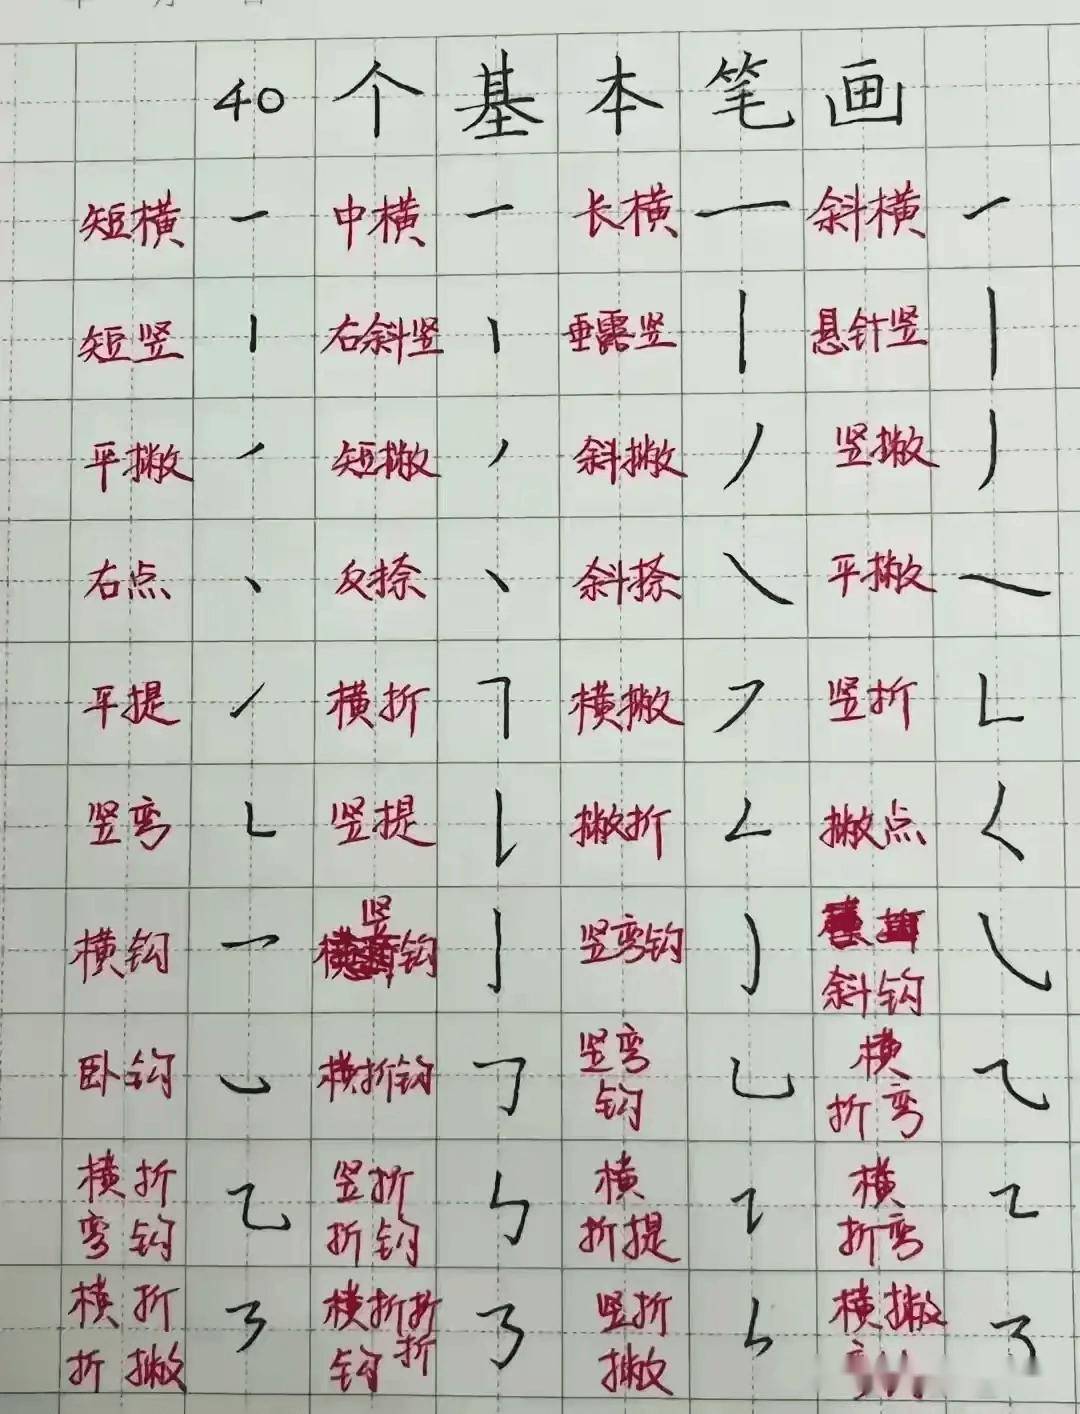 40个基本笔画
短横 中横 长横 斜横
短竖 右斜竖 垂露竖 悬针竖
平撇 短撇 斜撇 竖撇
右点 反捺 斜捺 平撇
平提 横折 横撇 竖折
竖弯 竖提 撇折 撇点
横钩 竖钩 竖弯钩 斜钩
卧钩 横折钩 竖弯钩 横折弯
横折弯钩 竖折折钩 横折提 横折弯
横折折撇 横折折折钩 竖折撇 横撇